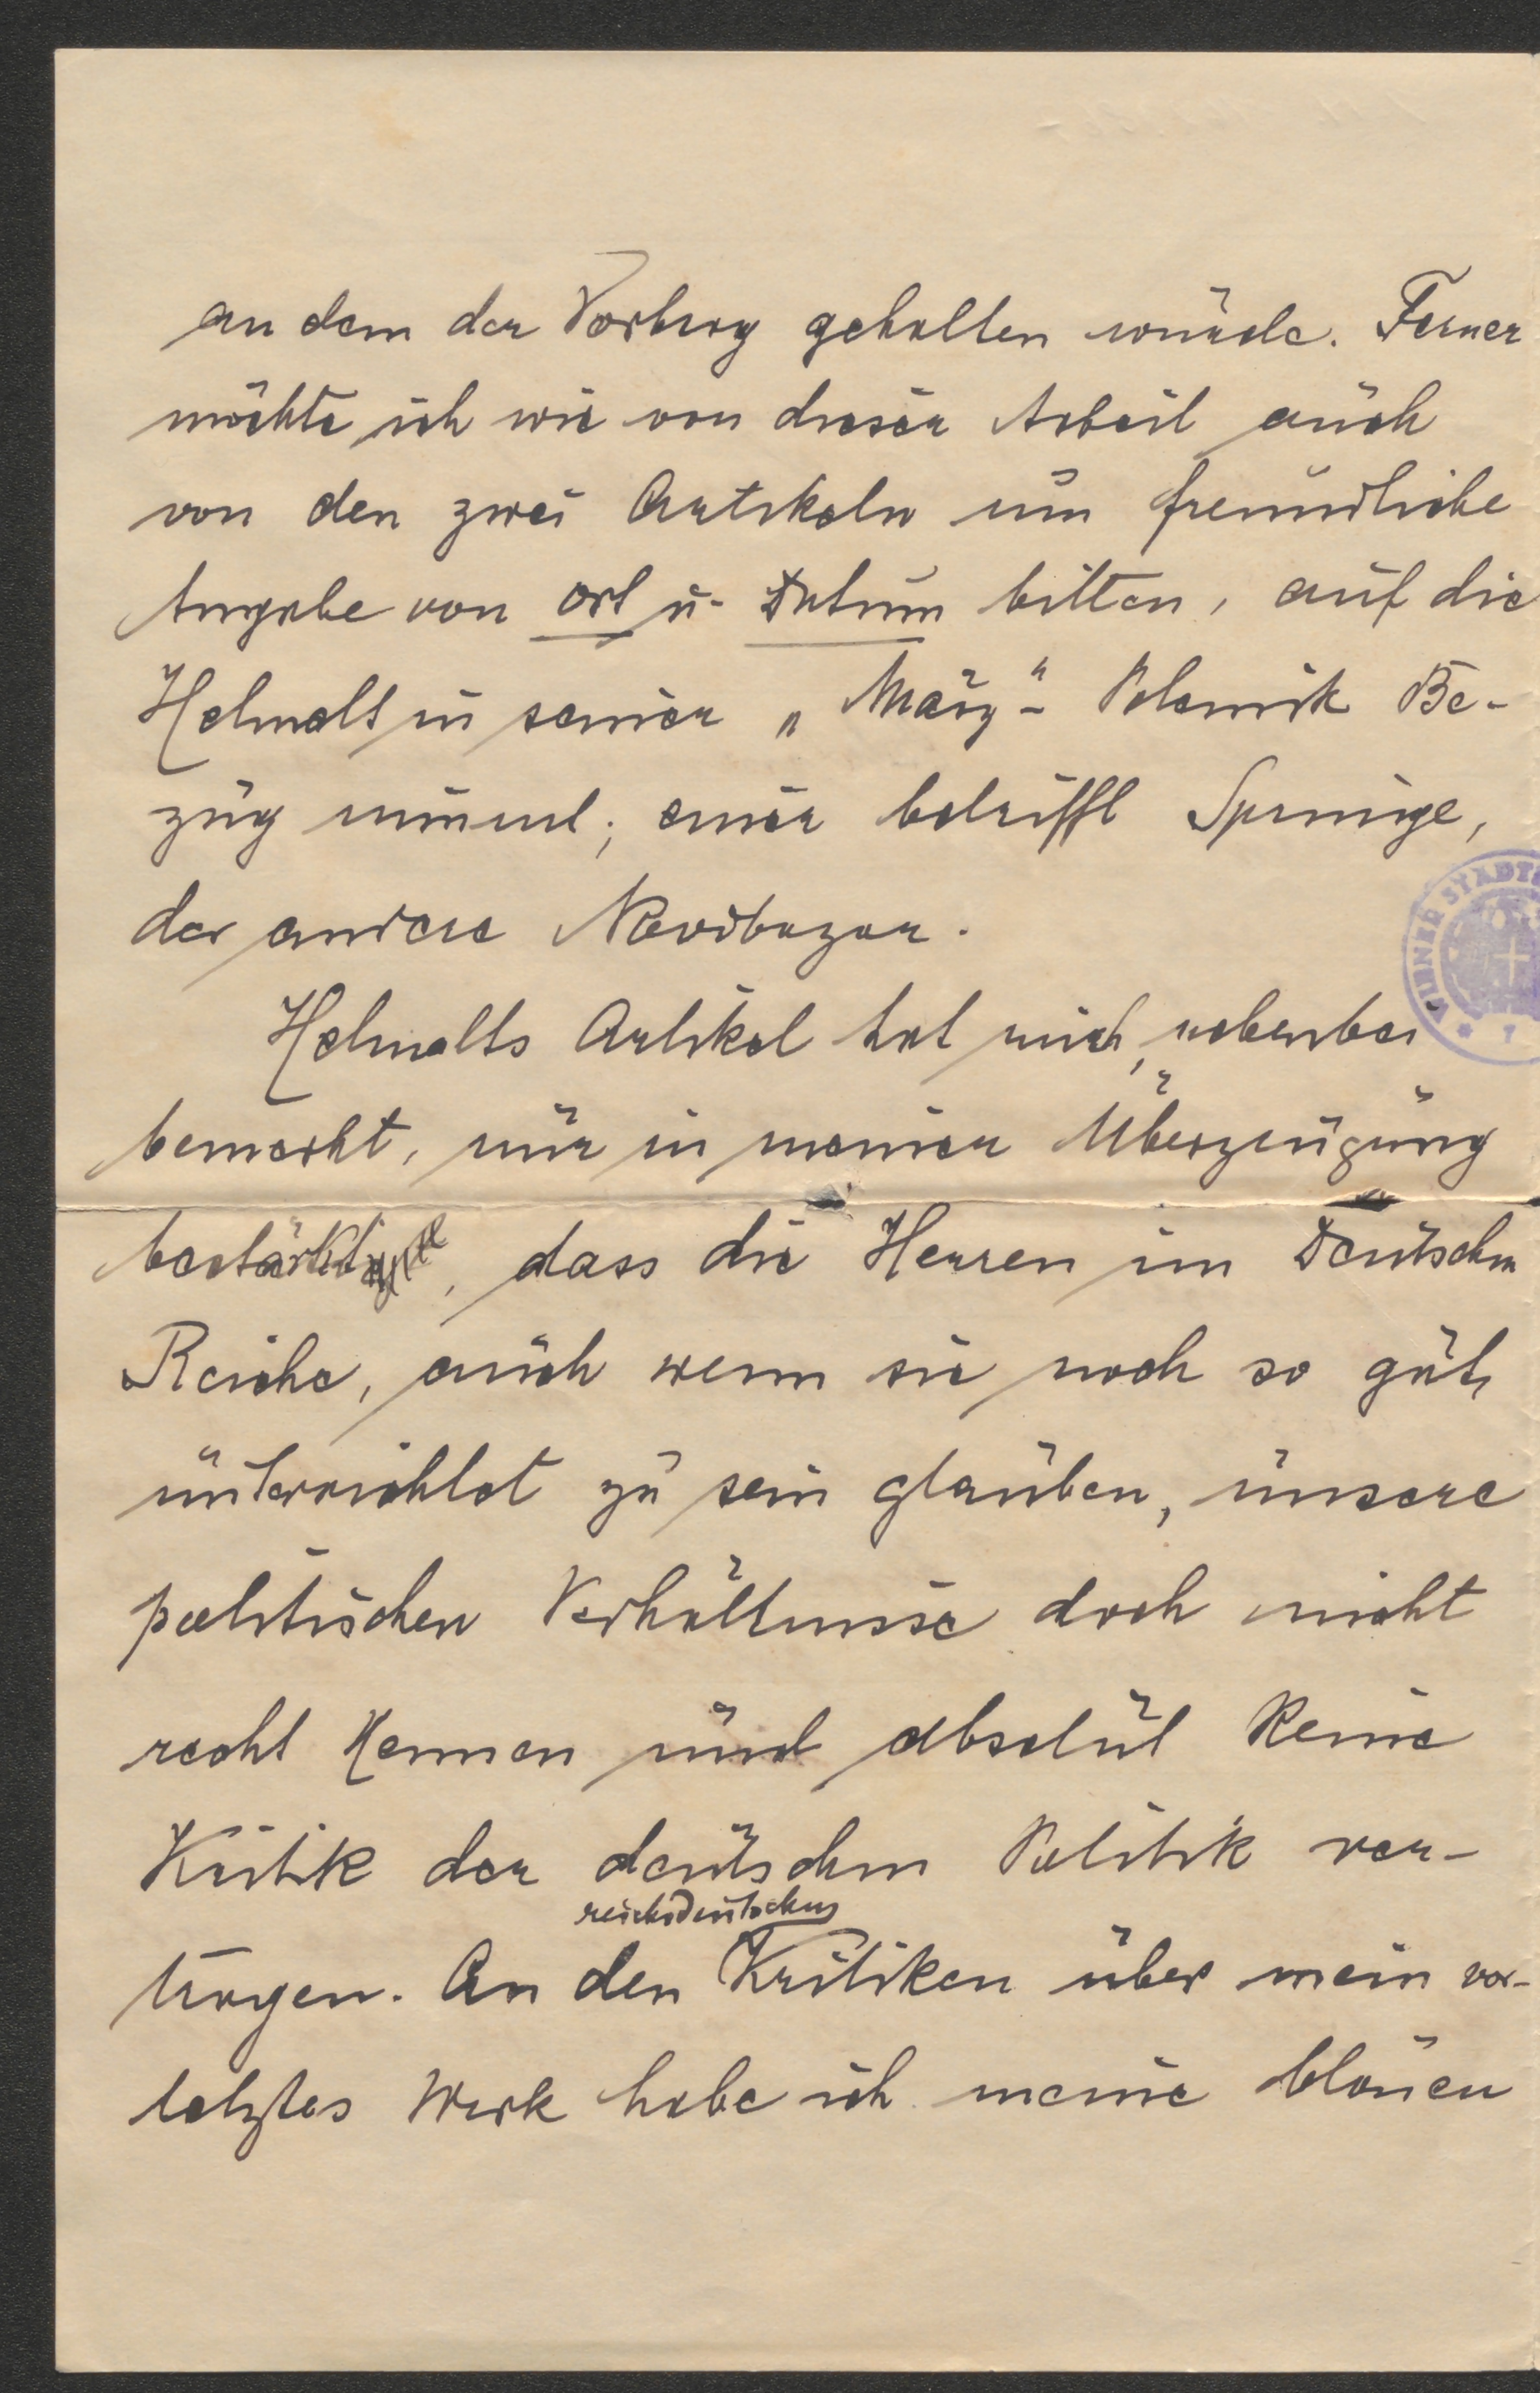 an dem der Vortrag gehalten wurde. Ferner
möchte ich wie von dieser Arbeit auch
von den zwei Artikeln um freundliche
Angabe von Ort u. Datum bitten, auf die
Helmolt in seiner „März"- Polemik Be-
zug nimmt; einer betrifft Springe,
der andere Novibazar.
Helmolts Artikel hat mich, nebenbei
bemerkt, nur in meiner Überzeugung
bestärkt, dass die Herren im Deutschen
Reiche, auch wenn sie noch so gut
unterrichtet zu sein glauben, unsere
politischen Verhältnisse doch nicht
recht kennen und absolut keine
Kritik der deutschen Politik ver-
reichsdeutschen
tragen. An den Kritiken über mein vor-
letztes Werk habe ich meine blauen
WIENER STADT